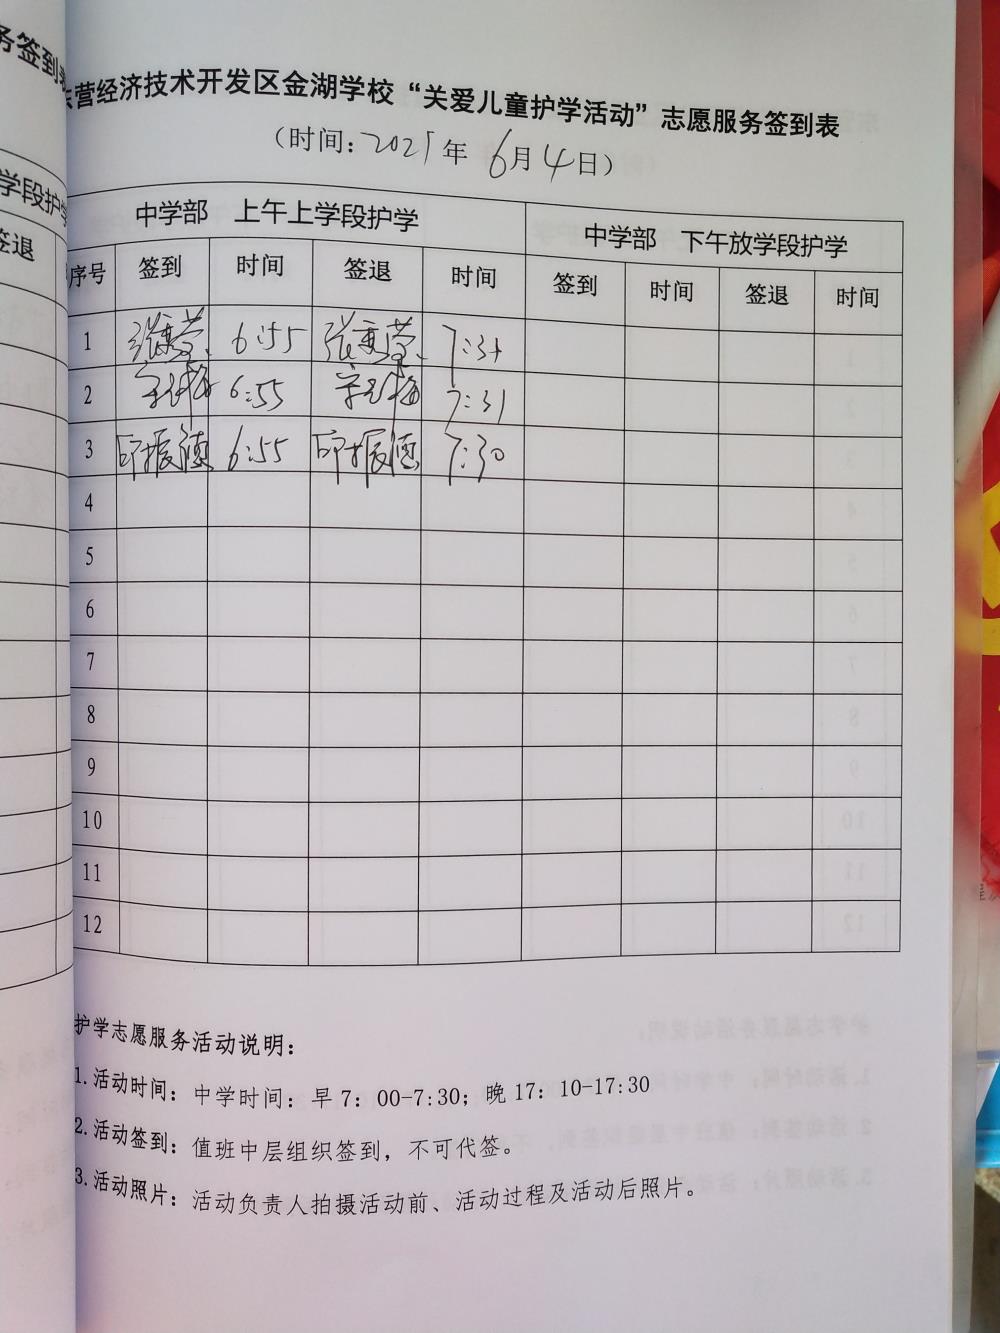 务签到表
学段护学
签退
东营经济技术开发区金湖学校“关爱儿童护学活动”志愿服务签到表
（时间：2021年 6月4日）
中学部 上午上学段护学 中学部 下午放学段护学
序号 签到 时间 签退 时间 签到 时间 签退 时间
1 6:55 7:31
2 6:55 7:31
3 印振德 6:55 印振德 7:30
4
5
6
7
8
9
10
11
12
护学志愿服务活动说明：
1.活动时间：中学时间：早7：00-7:30；晚17：10-17:30
2.活动签到：值班中层组织签到，不可代签。
3.活动照片：活动负责人拍摄活动前、活动过程及活动后照片。